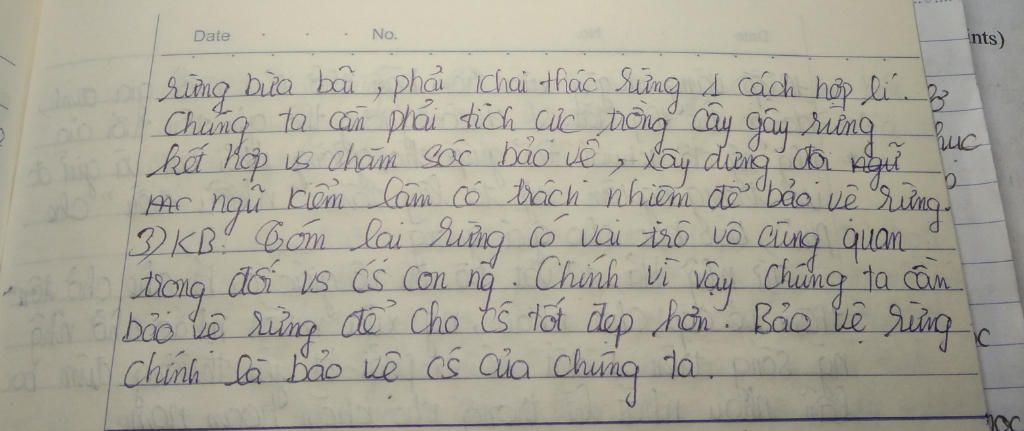 Date No.
nts)
rừng bừa bãi, phải khai thác rừng 1 cách hợp lí.
Chúng ta cần phải tích cực trồng cây gây rừng
kết hợp vs chăm sóc bảo vệ, xây dựng đội ngũ
ngũ kiểm lâm có trách nhiệm để bảo vệ rừng.
3) KB: Tóm lại rừng có vai trò vô cùng quan
trọng đối vs CS con ng. Chính vì vậy chúng ta cần
bảo vệ rừng để cho CS tốt đẹp hơn. Bảo vệ rừng
chính là bảo vệ CS của chúng ta.